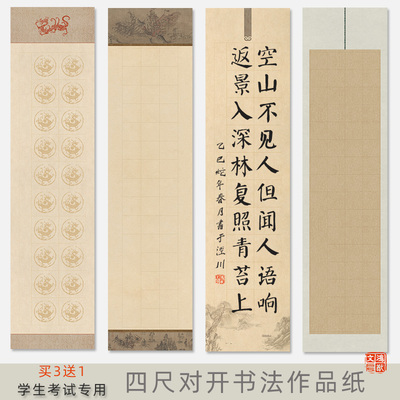 空山不见人但闻人语响
返景入深林复照青苔上
乙巳蛇年春月书于滏川
买3送1
学生考试专用
四尺对开书法作品纸